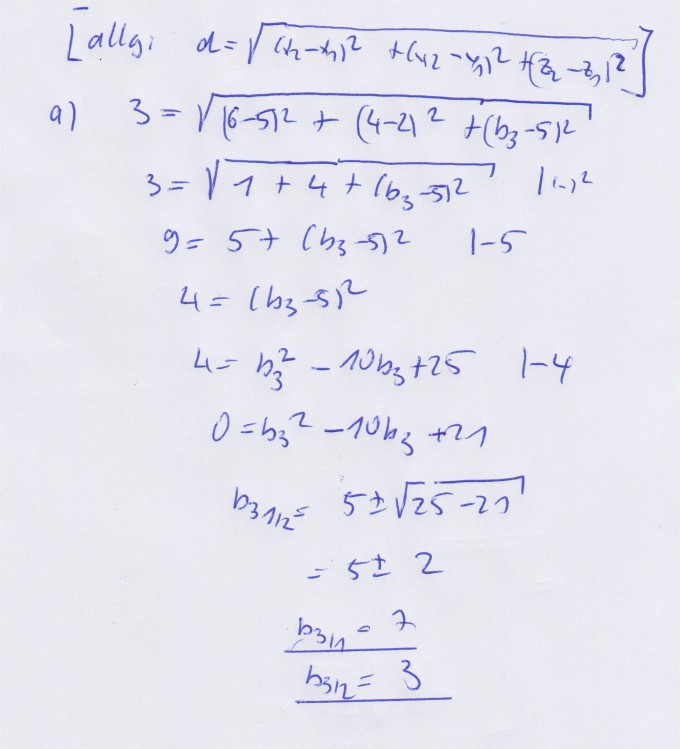 [allg: d = √((x₂-x₁)² + (y₂-y₁)² + (z₂-z₁)²)]
a) 3 = √((6-5)² + (4-2)² + (b₃-5)²)
3 = √(1 + 4 + (b₃-5)²) |(..)²
9 = 5 + (b₃-5)² |-5
4 = (b₃-5)²
4 = b₃² - 10b₃ + 25 |-4
0 = b₃² - 10b₃ + 21
b₃₁/₂ = 5 ± √(25-21)
= 5 ± 2
b₃/₁ = 7
b₃/₂ = 3